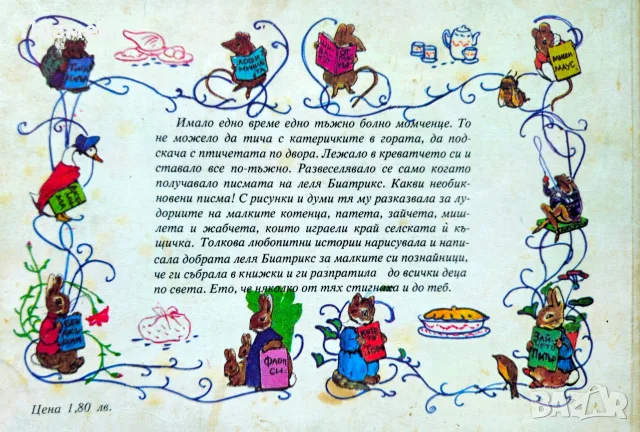 Имало едно време едно тъжно болно момченце. То
не можело да тича с катеричките в гората, да под-
скача с птичетата по двора. Лежало в креватчето си и
ставало все по-тъжно. Развеселявало се само когато
получавало писмата на леля Биатрикс. Какви необик-
новени писма! С рисунки и думи тя му разказвала за лу-
дориите на малките котенца, патета, зайчета, миш-
лета и жабчета, които играели край селската ѝ къ-
щичка. Толкова любопитни истории нарисувала и напи-
сала добрата леля Биатрикс за малките си познайници,
че ги събрала в книжки и ги разпратила до всички деца
по света. Ето, че няколко от тях стигнаха и до теб.
ФЛОП
СИ
КОТЕ
ТО
ТОМ
ЗАЙ
ЧЕТО
ПИТЪР
МИШИ
МАУС
Цена 1,80 лв.
BAZAR